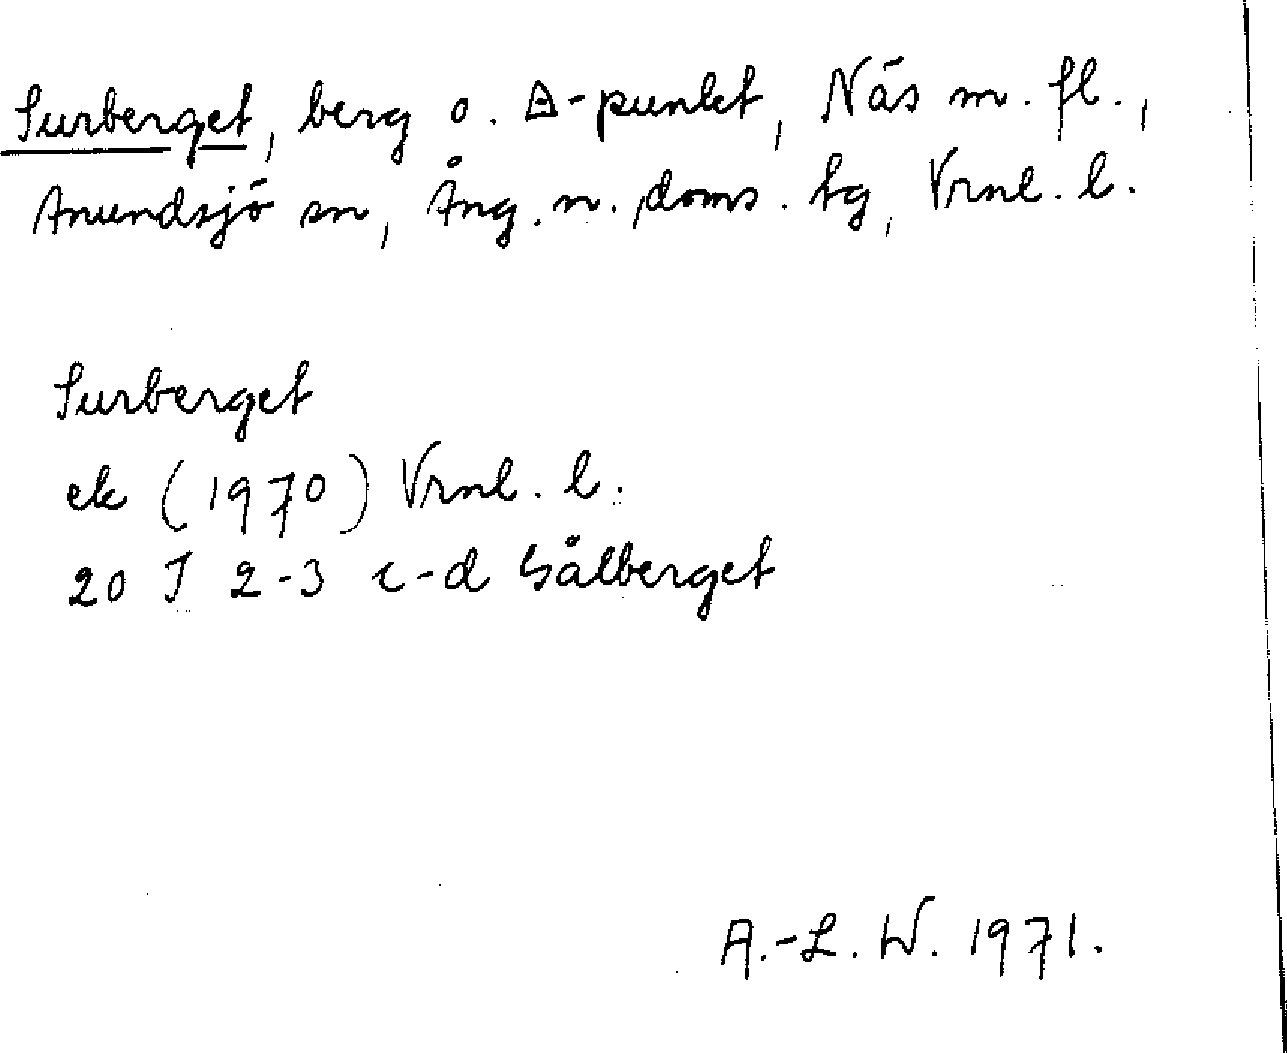 Surberget, berg o. △-punkt, Näs m. fl.,
Anundsjö sn, Ång. n. doms. tg, Vrnl. l.
Surberget
ek (1970) Vrnl. l.
20 J 2-3 c-d Gålberget
A.-L. W. 1971.